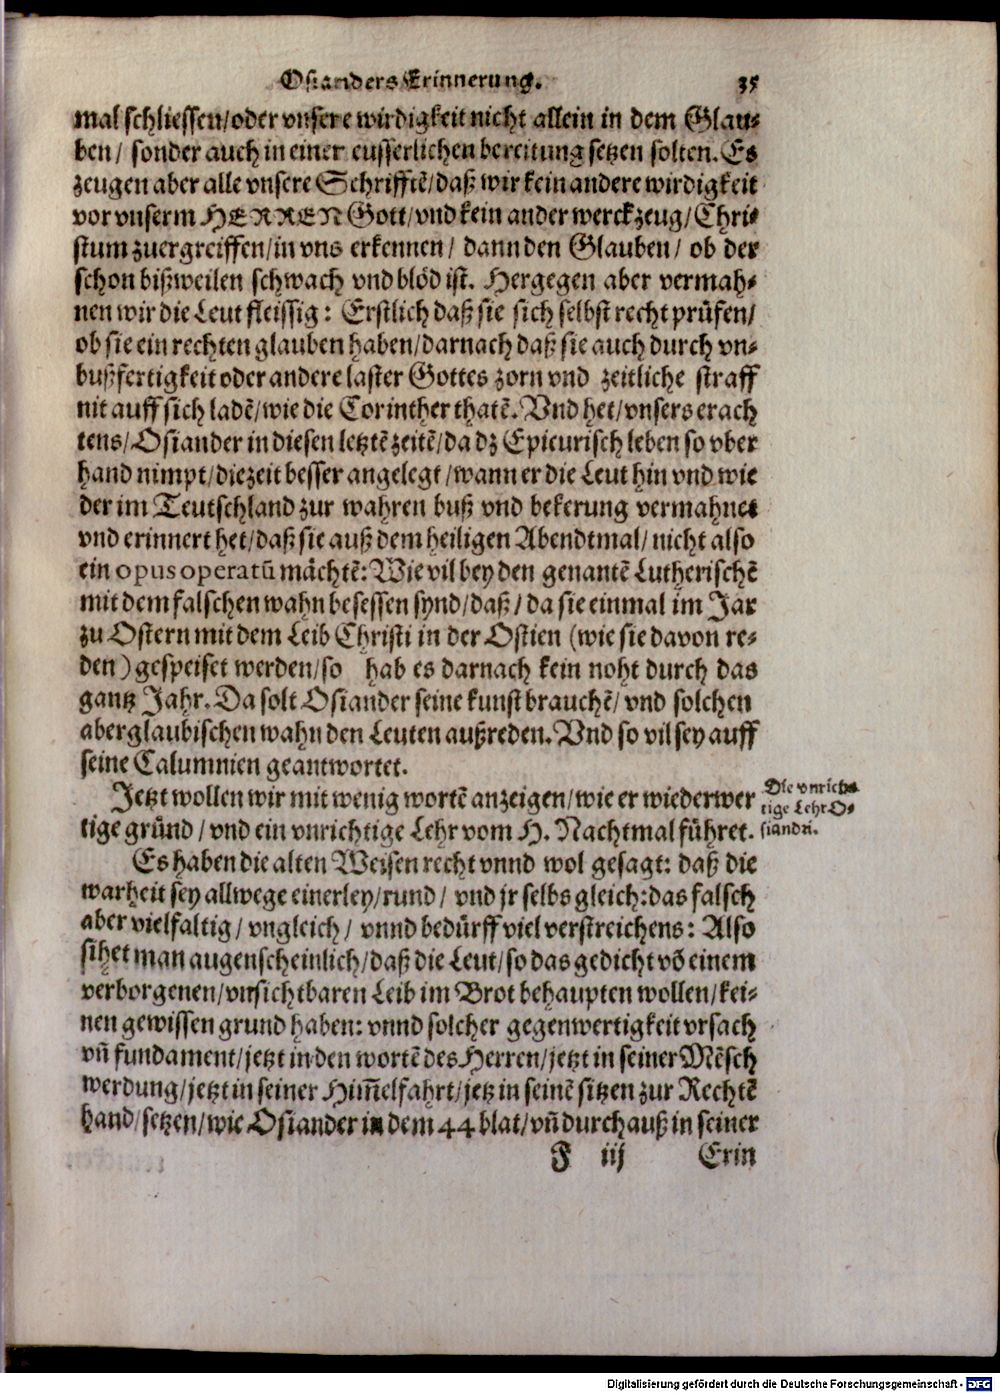 Osianders Erinnerung. 35
mal schliessen/oder vnsere wirdigkeit nicht allein in dem Glau-
ben/ sonder auch in einer eusserlichen bereitung setzen solten. Es
zeugen aber alle vnsere Schrifftẽ/daß wir kein andere wirdigkeit
vor vnserm HERREN Gott/vnd kein ander werckzeug/Chri-
stum zuergreiffen/in vns erkennen/ dann den Glauben/ ob der
schon bißweilen schwach vnd blöd ist. Hergegen aber vermah-
nen wir die Leut fleissig: Erstlich daß sie sich selbst recht prüfen/
ob sie ein rechten glauben haben/darnach daß sie auch durch vn-
bußfertigkeit oder andere laster Gottes zorn vnd zeitliche straff
nit auff sich ladẽ/wie die Corinther thatẽ. Vnd het/vnsers erach
tens/Osiander in diesen letztẽ zeitẽ/da dz Epicurisch leben so vber
hand nimpt/die zeit besser angelegt/wann er die Leut hin vnd wie
der im Teutschland zur wahren buß vnd bekerung vermahnet
vnd erinnert het/daß sie auß dem heiligen Abendtmal/nicht also
ein opus operatũ mächtẽ: Wie vil bey den genantẽ Lutherischẽ
mit dem falschen wahn besessen synd/daß/da sie einmal im Jar
zu Ostern mit dem Leib Christi in der Ostien (wie sie davon re-
den) gespeiset werden/so hab es darnach kein noht durch das
gantz Jahr. Da solt Osiander seine kunst brauchẽ/vnd solchen
aberglaubischen wahn den Leuten außreden. Vnd so vil sey auff
seine Calumnien geantwortet.
Jetzt wollen wir mit wenig wortẽ anzeigen/wie er wiederwer
tige gründ/vnd ein vnrichtige Lehr vom H. Nachtmal führet.
Die vnrich-
tige Lehr O-
siandri.
Es haben die alten Weisen recht vnnd wol gesagt: daß die
warheit sey allwege einerley/rund/ vnd jr selbs gleich: das falsch
aber vielfaltig/ vngleich/ vnnd bedürff viel verstreichens: Also
sihet man augenscheinlich/daß die Leut/so das gedicht võ einem
verborgenen/vnsichtbaren Leib im Brot behaupten wollen/kei-
nen gewissen grund haben: vnnd solcher gegenwertigkeit vrsach
vñ fundament/jetzt in den wortẽ des Herren/jetzt in seiner Mẽsch
werdung/jetzt in seiner Him̃elfahrt/jetz in seinẽ sitzen zur Rechtẽ
hand/setzen/wie Osiander in dem 44 blat/vñ durchauß in seiner
F iij Erin
Digitalisierung gefördert durch die Deutsche Forschungsgemeinschaft - DFG